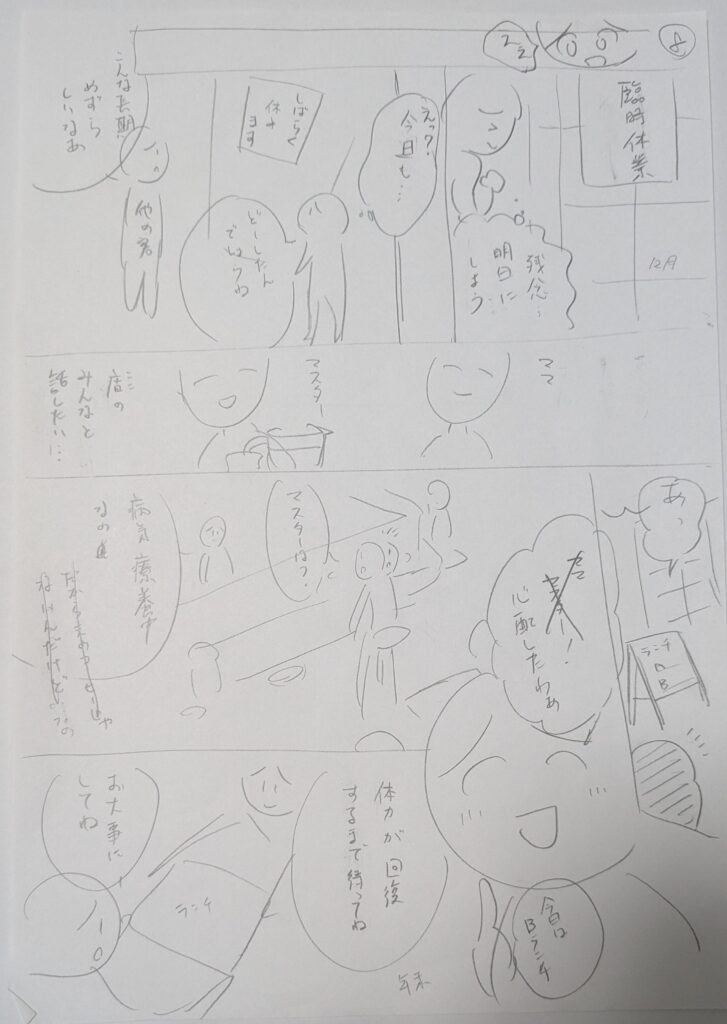 8
22
臨時休業
12月
残念…
明日に
しよう
えっ?
今日も…
しばらく
休み
ます
どーしたん
でしょうね
他の客
こんな長期
めずら
しいなあ
ママ
マスター
店の
みんなと
話したいに…
あっ
ランチ
B
ママー!
心配したわぁ
マスターは?
病気療養中
なの
今日は
Bランチ
体力が回復
するまで待ってね
年末
ランチ
お大事に
してね